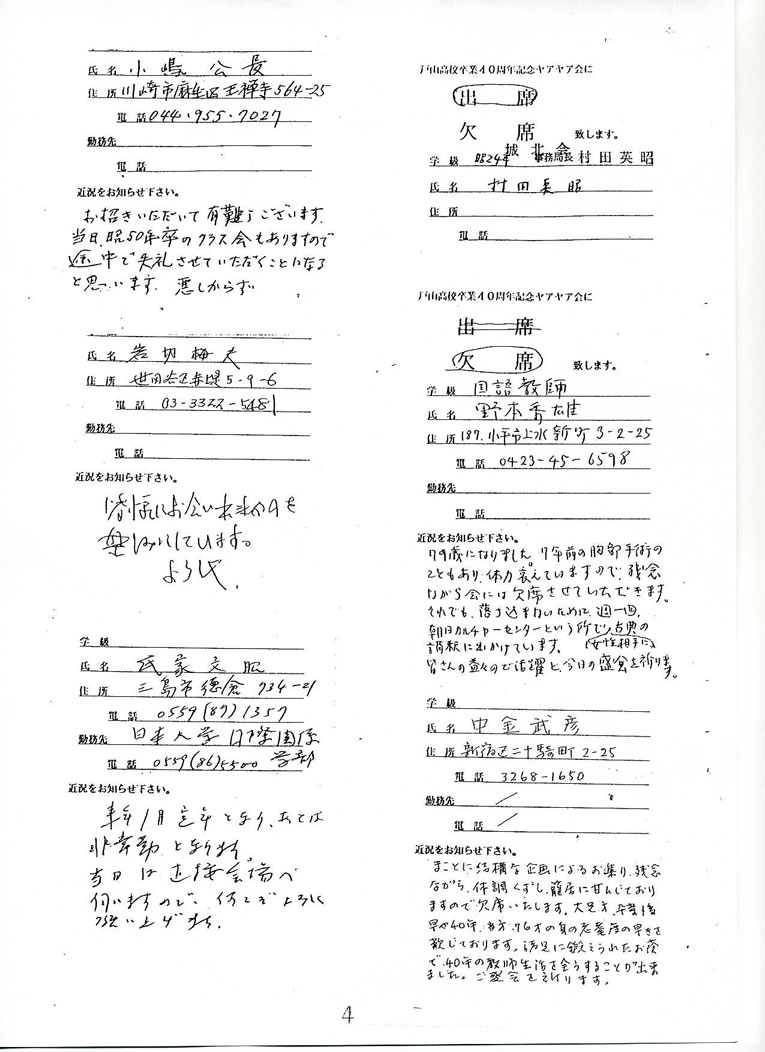 氏名 小嶋公長
住所 川崎市麻生区王禅寺564-25
電話 044・955・7027
勤務先
電話
近況をお知らせ下さい。
お招きいただいて有難うございます.
当日、昭50年卒のクラス会もありますので
途中で失礼させていただくことになる
と思います. 悪しからず
氏名 岩切梅夫
住所 世田谷区赤堤5-9-6
電話 03-3322-5481
勤務先
電話
近況をお知らせ下さい。
皆様にお会い出来るのを
楽しみにしています。
よろしく.
学級
氏名 氏家文昭
住所 三島市徳倉734-21
電話 0559(87)1357
勤務先 日本大学国際関係
電話 0559(86)5500 学部
近況をお知らせ下さい。
来年1月定年となり、あとは
非常勤となります。
当日は直接会場へ
伺いますので、何とぞよろしく
願い上げます.
戸山高校卒業40周年記念ヤアヤア会に
出席
欠席 致します。
学級 昭24年 城北会 事務局長 村田英昭
氏名 村田英昭
住所
電話
戸山高校卒業40周年記念ヤアヤア会に
出席
欠席 致します。
学級 国語教師
氏名 野本秀雄
住所 187. 小平市上水新町3-2-25
電話 0423-45-6598
勤務先
電話
近況をお知らせ下さい。
79歳になりました。7年前の胸部手術の
こともあり、体力衰えていますので、残念
ながら会には欠席させていただきます。
それでも、落ち込まないために、週一回、
朝日カルチャーセンターという所で、古典の
講読に出かけています。(女性相手に)
皆さんの益々のご活躍と、今日の盛会を祈ります。
学級
氏名 中金武彦
住所 新宿区二十騎町2-25
電話 3268-1650
勤務先 /
電話 /
近況をお知らせ下さい。
まことに結構な企画によるお集り、残念
ながら、体調くずし、籠居に甘んじており
ますので欠席いたします。大兄方、卒業後
早や40年、当方、76才の身の老衰度の早きを
歎じております。諸兄に鍛えられたお蔭
で、40年の教師生活を全うすることが出来
ました。ご盛会を祈ります。
4